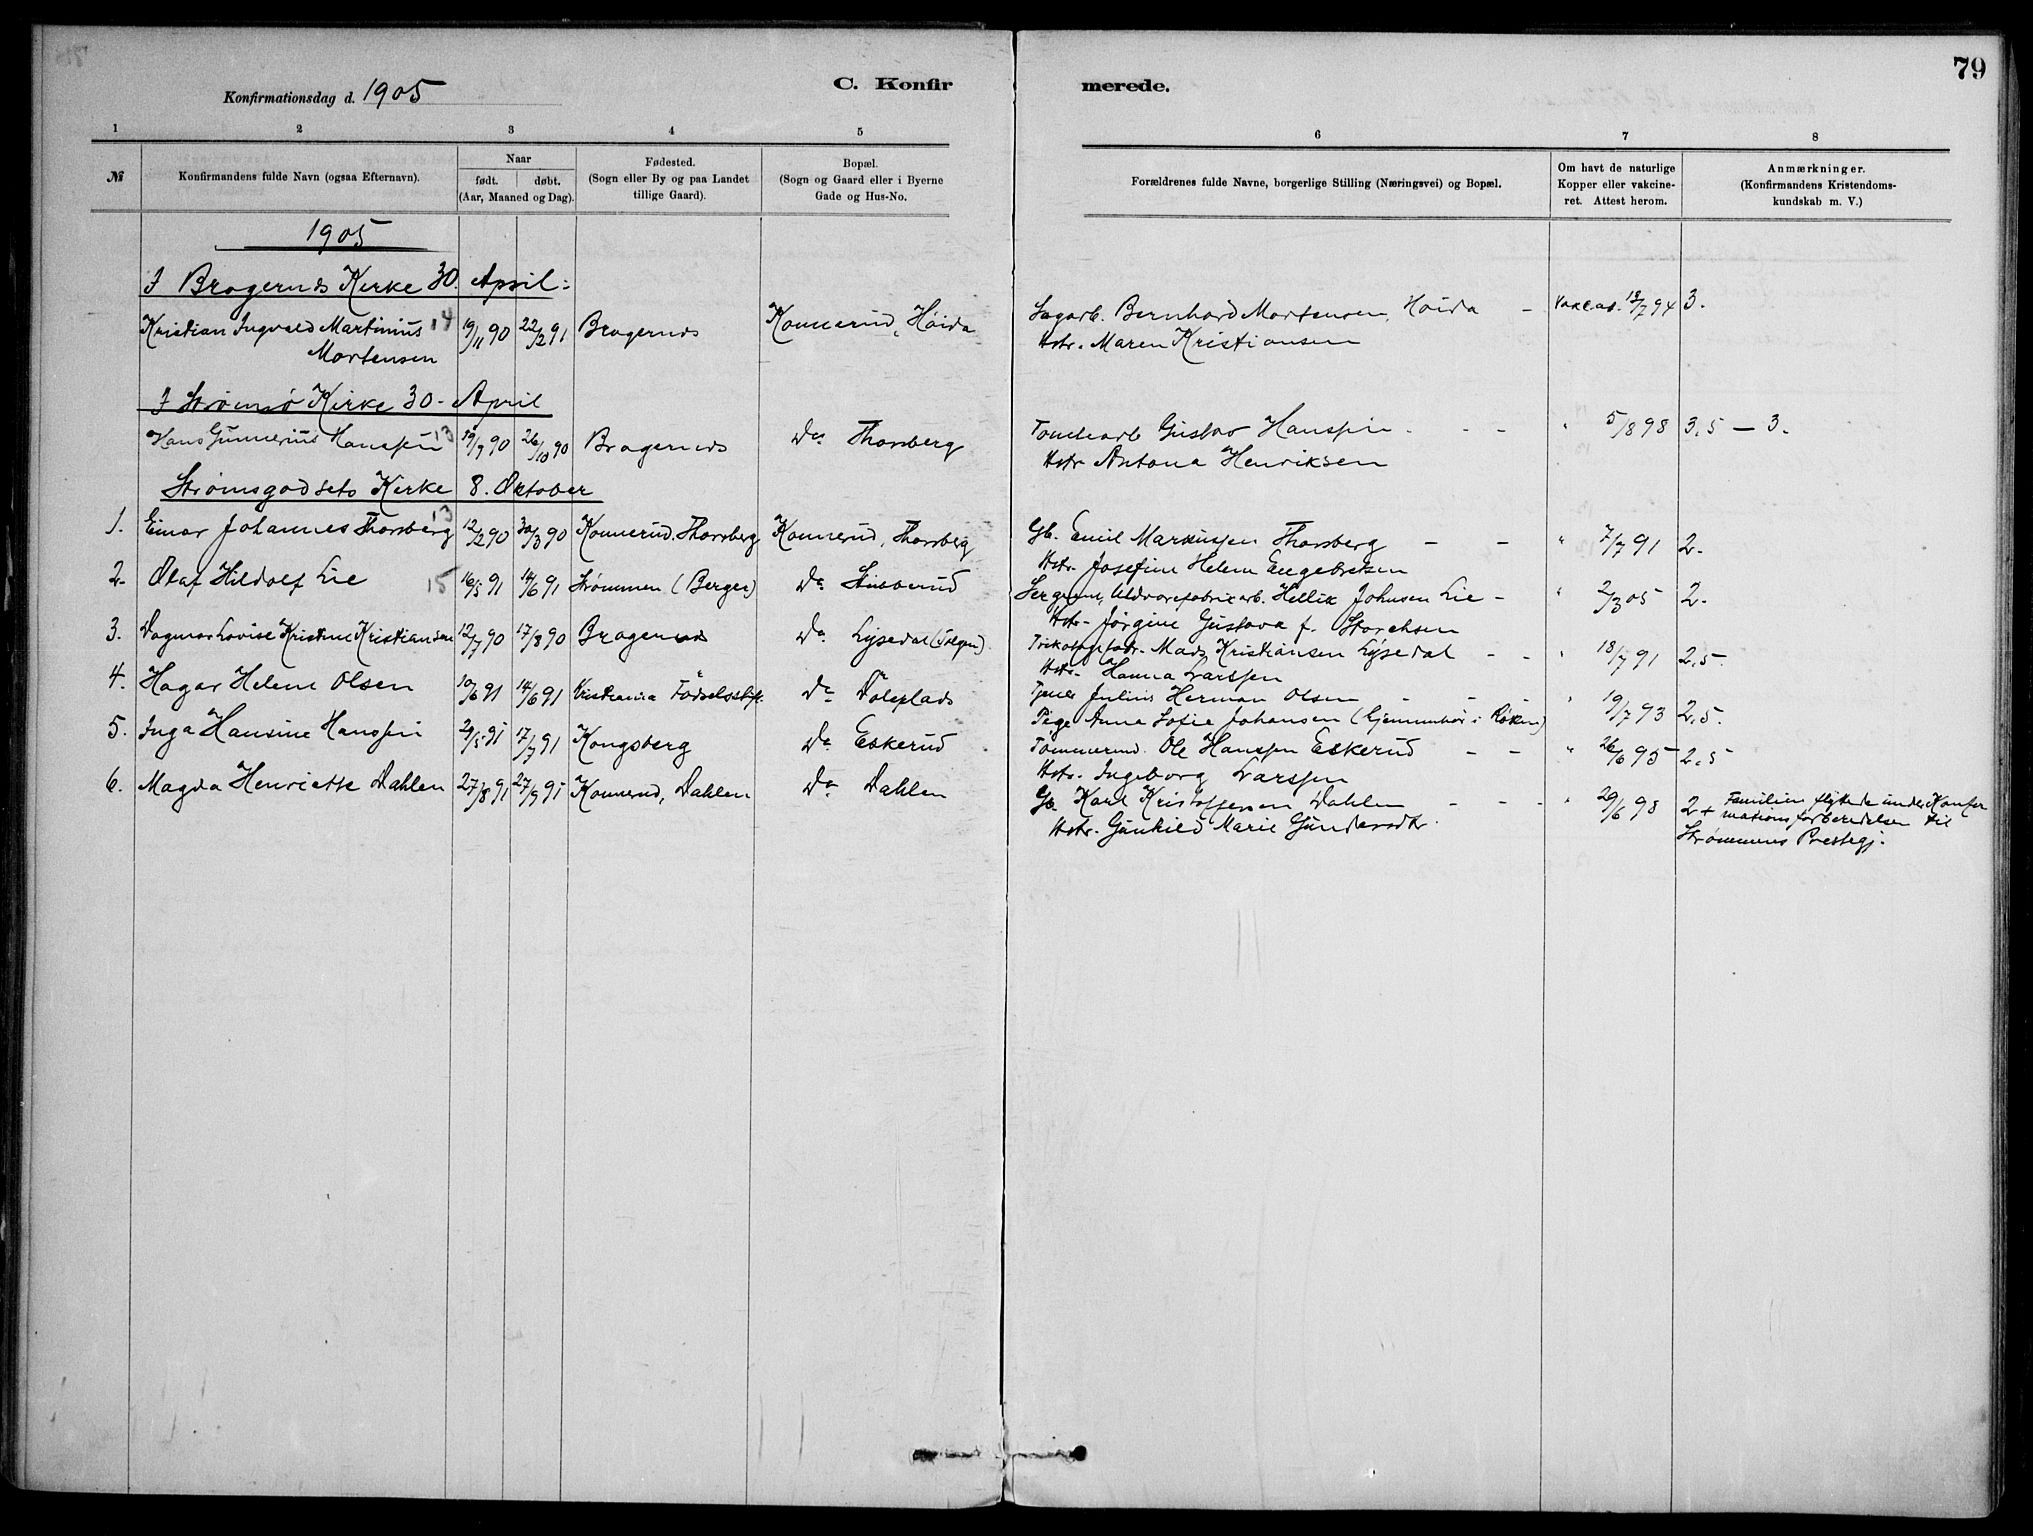 79
Konfirmationsdag d. 1905
C. Konfirmerede.
1 2 3 4 5 6 7 8
№
Konfirmandens fulde Navn (ogsaa Efternavn).
Naar
født. døbt.
(Aar, Maaned og Dag).
Fødested.
(Sogn eller By og paa Landet
tillige Gaard).
Bopæl.
(Sogn og Gaard eller i Byerne
Gade og Hus-No.
Forældrenes fulde Navne, borgerlige Stilling (Næringsvei) og Bopæl.
Om havt de naturlige
Kopper eller vakcine-
ret. Attest herom.
Anmærkninger.
(Konfirmandens Kristendoms-
kundskab m. V.)
1905
I Bragernes Kirke 30. April:
Kristian Ingvald Martinius 14 19/11 90 22/2 91 Bragernes Konnerud, Høida Sagarb. Bernhard Mortensen, Høida - 18/7 94 3.
Mortensen Hstr. Maren Kristiansen
I Strømsø Kirke 30. April
Hans Gunnerius Hanssen 13 19/9 90 26/10 90 Bragernes Do Thorsberg Gustav Hanssen - - " 5/8 98 3,5 — 3.
Hstr Antona Henriksen
Strømsgodsets Kirke 8. Oktober
1. Einar Johannes Thorsberg 13 12/2 90 30/3 90 Konnerud, Thorsberg Konnerud, Thorsberg Gb. Emil Markussen Thorsberg - - " 7/7 91 2.
Hstr. Josefine Helene Engebretsen
2. Olaf Hildolf Lie 15 16/5 91 14/6 91 Strømmen (Berger) Do Stubberud Uldvarefabrikarb. Hellik Johnsen Lie - " 2/3 05 2.
Hstr. Jørgine Gustava f. Storchsen
3. Dagmar Lovise Kristine Kristiansen 12/7 90 17/8 90 Bragernes Do Lysedal Mads Kristiansen Lysedal - - " 18/7 91 2,5.
Hstr. Hanna Larssen
4. Hagar Helene Olsen 10/6 91 14/6 91 Kristiania Fødselsstift. Do Døleplads Tjener Julius Herman Olsen - - - " 19/7 93 2,5.
Pige Anna Sofie Johansen (hjemmehør i Røken)
5. Inga Hansine Hanssen 29/5 91 17/7 91 Kongsberg Do Eskerud Tømmermd. Ole Hanssen Eskerud - - " 26/6 95 2,5
Hstr. Ingeborg Larssen
6. Magda Henriette Dahlen 27/8 91 27/9 91 Konnerud, Dahlen Do Dahlen Gb. Karl Kristoffersen Dahlen - - - " 29/6 98 2+ Familien flyttede under Konfir
Hstr. Gunhild Marie Gundersdtr. mationsforberedelsen til
Strømmens Prestegj.